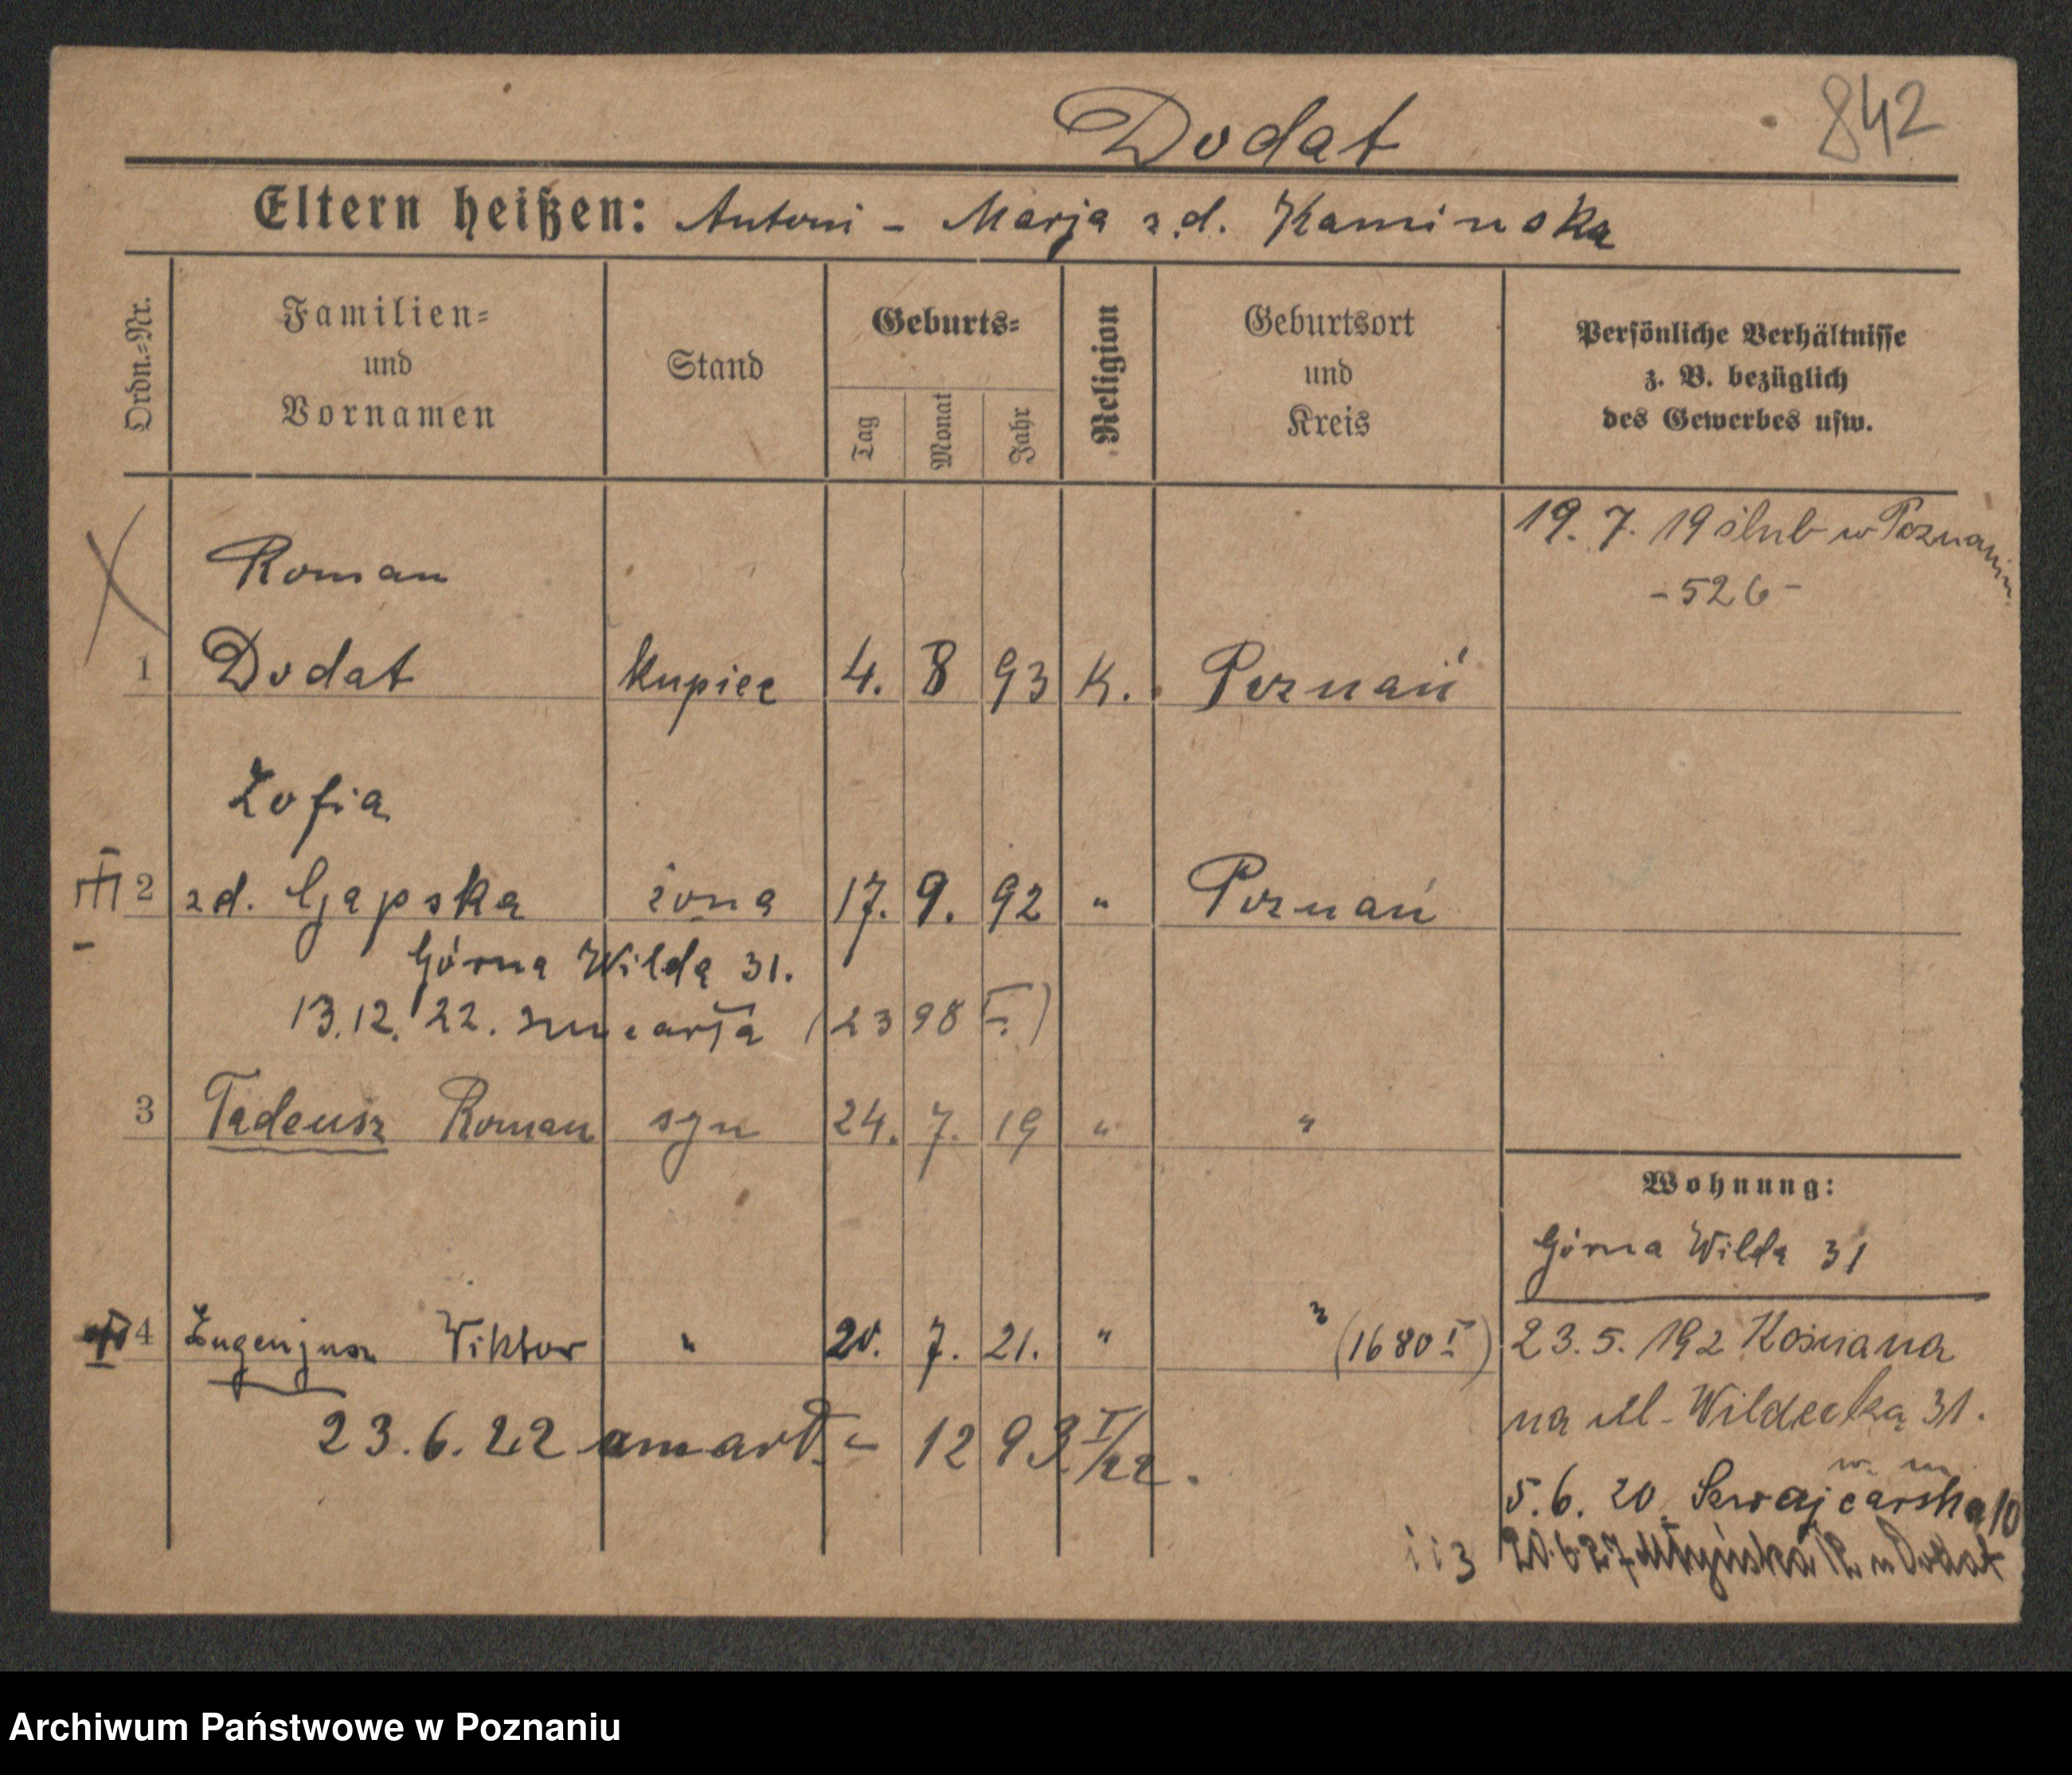 Dodat 842
Eltern heißen: Antoni - Marja z.d. Kaminska
Ordn.-Nr.
Familien-
und
Vornamen
Stand
Geburts-
Tag
Monat
Jahr
Religion
Geburtsort
und
Kreis
Persönliche Verhältnisse
z. B. bezüglich
des Gewerbes usw.
19. 7. 19 ślub w Poznaniu
- 526 -
Roman
1 Dodat kupiec 4. 8 93 K. Poznań
Zofia
2 zd. Gapska żona 17. 9. 92 " Poznań
Górna Wilda 31.
13.12. 22. zmarła (2398 I.)
3 Tadeusz Roman syn 24. 7. 19 " "
Wohnung:
Górna Wilda 31
4 Eugenjusz Wiktor " 20. 7. 21. " " (1680 I)
23.6.22 zmarł - 1293 I/22.
23. 5. 192
na ul. Wildecką 31.
5. 6. 20. Szwajcarska 10
Dodat
Archiwum Państwowe w Poznaniu